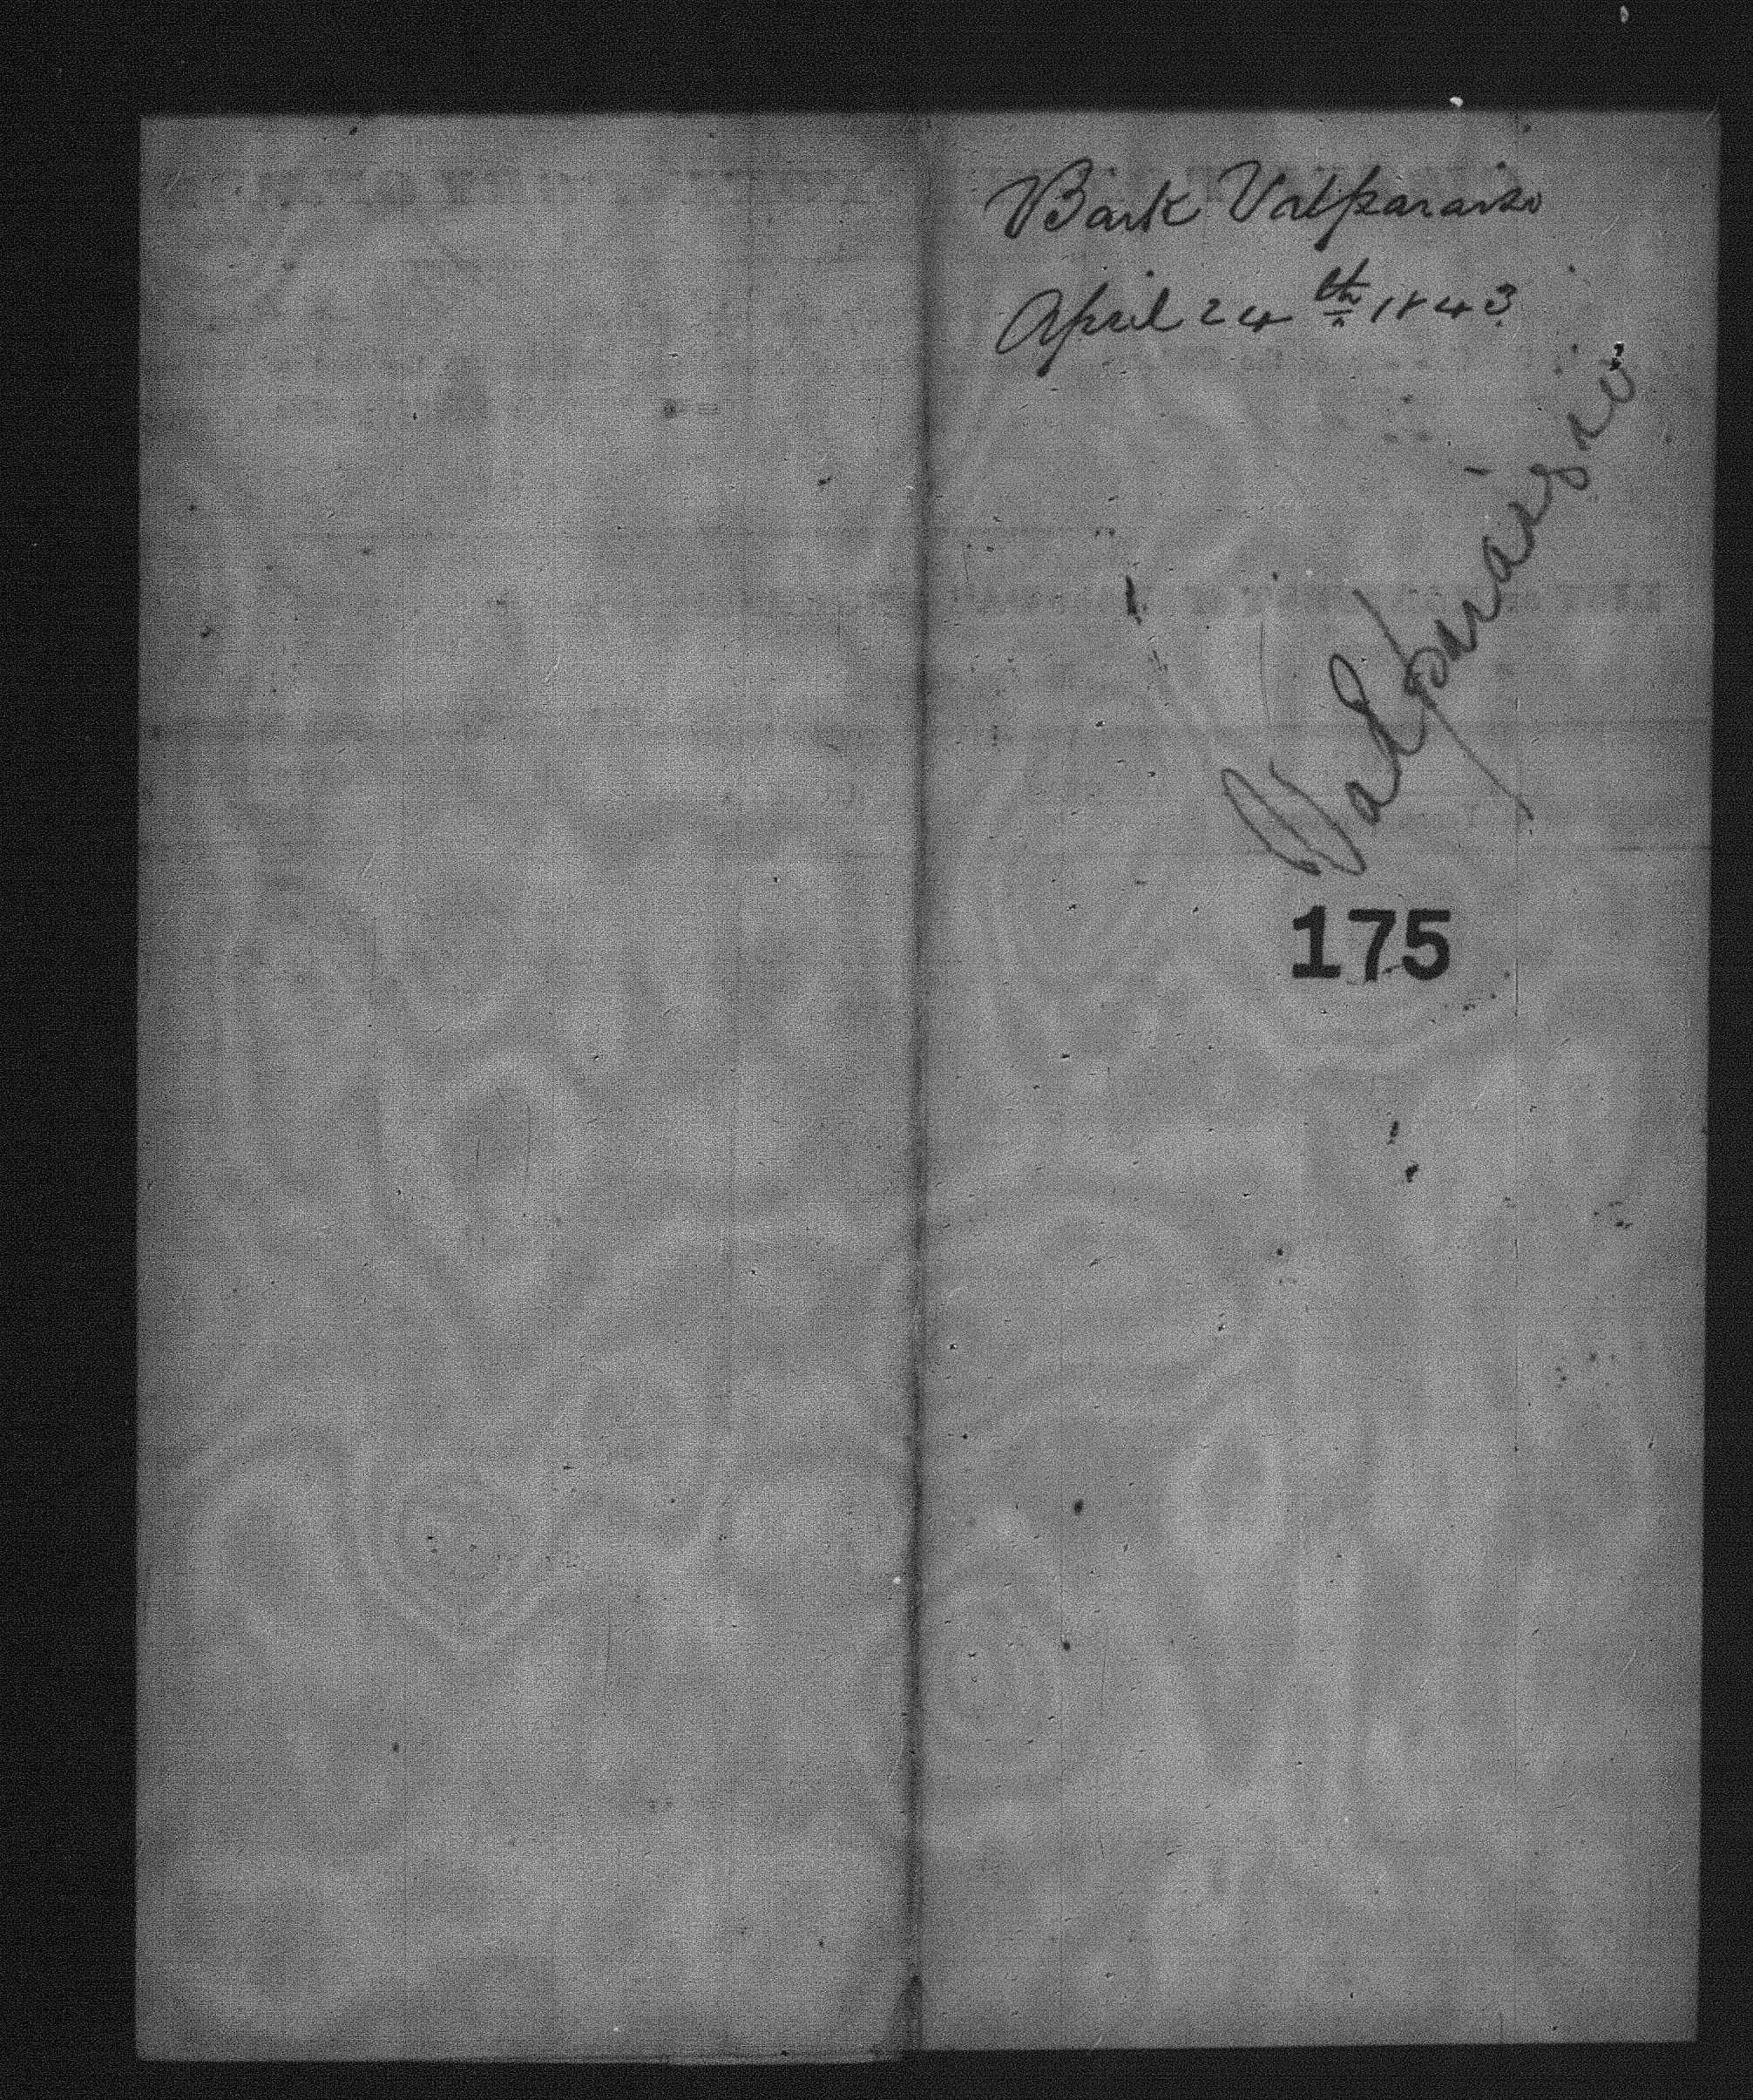 Bark Valparaiso
April 24th 1843
Valparaiso
175